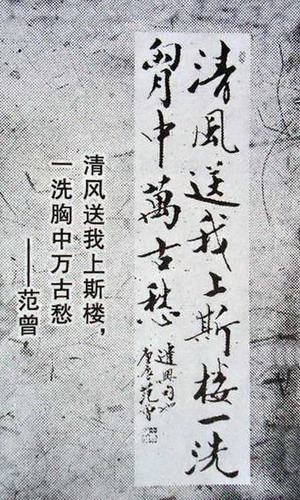 清風送我上斯楼一洗
胷中萬古愁
范曾
清风送我上斯楼，
一洗胸中万古愁
——范曾